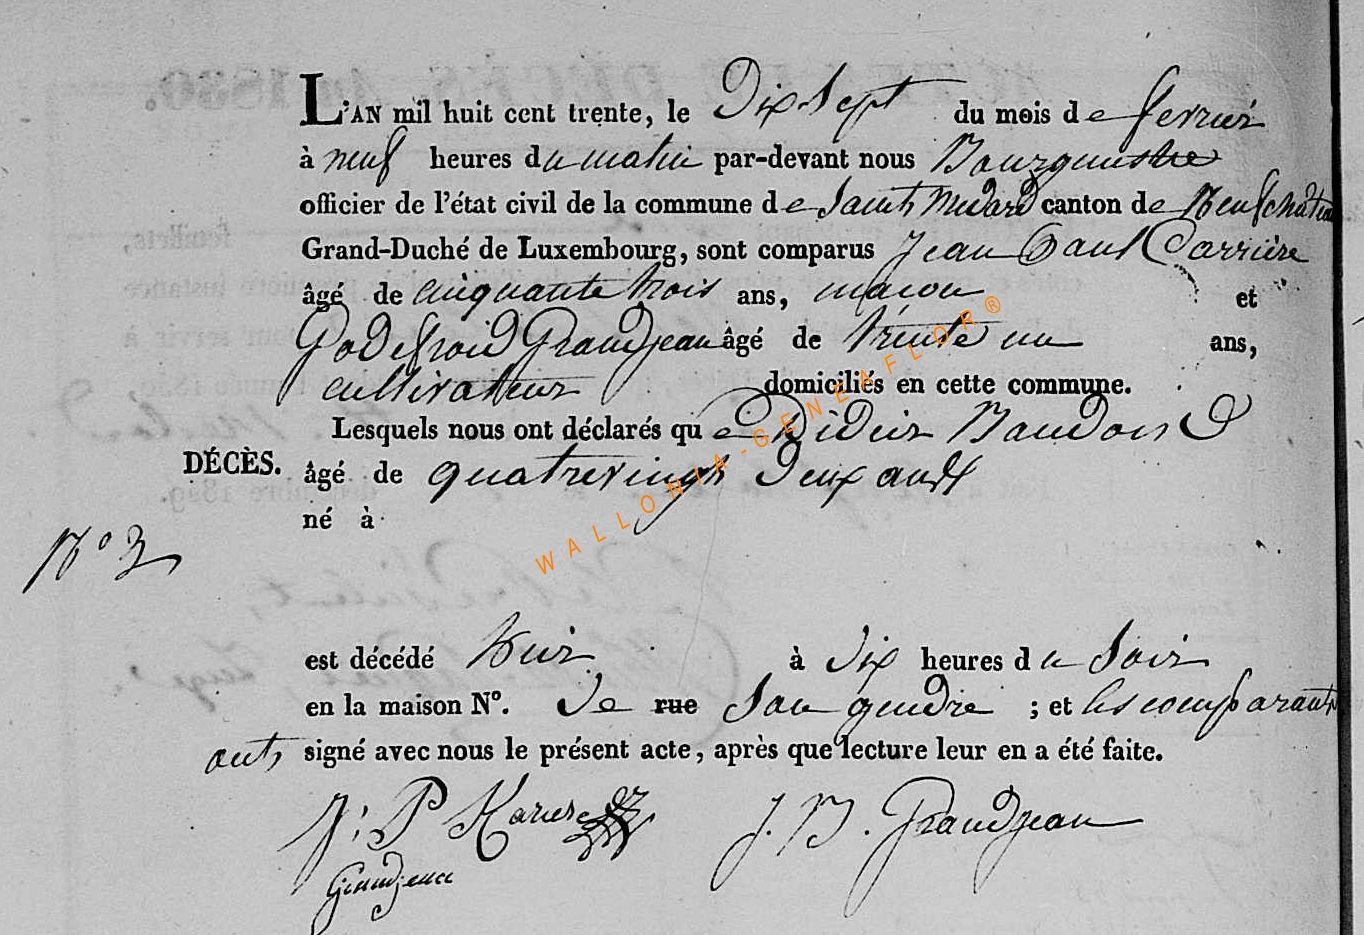 L'AN mil huit cent trente, le Dix Sept du mois de fevrier
à neuf heures du matin par-devant nous Bourguestre
officier de l'état civil de la commune de Saint Medard canton de Neufchateau
Grand-Duché de Luxembourg, sont comparus Jean Paul Carriere
âgé de cinquante trois ans, macon et
Godefroid Grandjean âgé de trente un ans,
cultivateur domiciliés en cette commune.
Lesquels nous ont déclarés que Didier Baudoin
DÉCÈS. âgé de quatrevingt Deux ans
né à
N° 3
est décédé hier à Dix heures du Soir
en la maison N°. de rue Son gendre ; et les comparants
onts signé avec nous le présent acte, après que lecture leur en a été faite.
J: P Karier J. B. Grandjean
Grandjean
WALLONIA-GENEAFLOR®